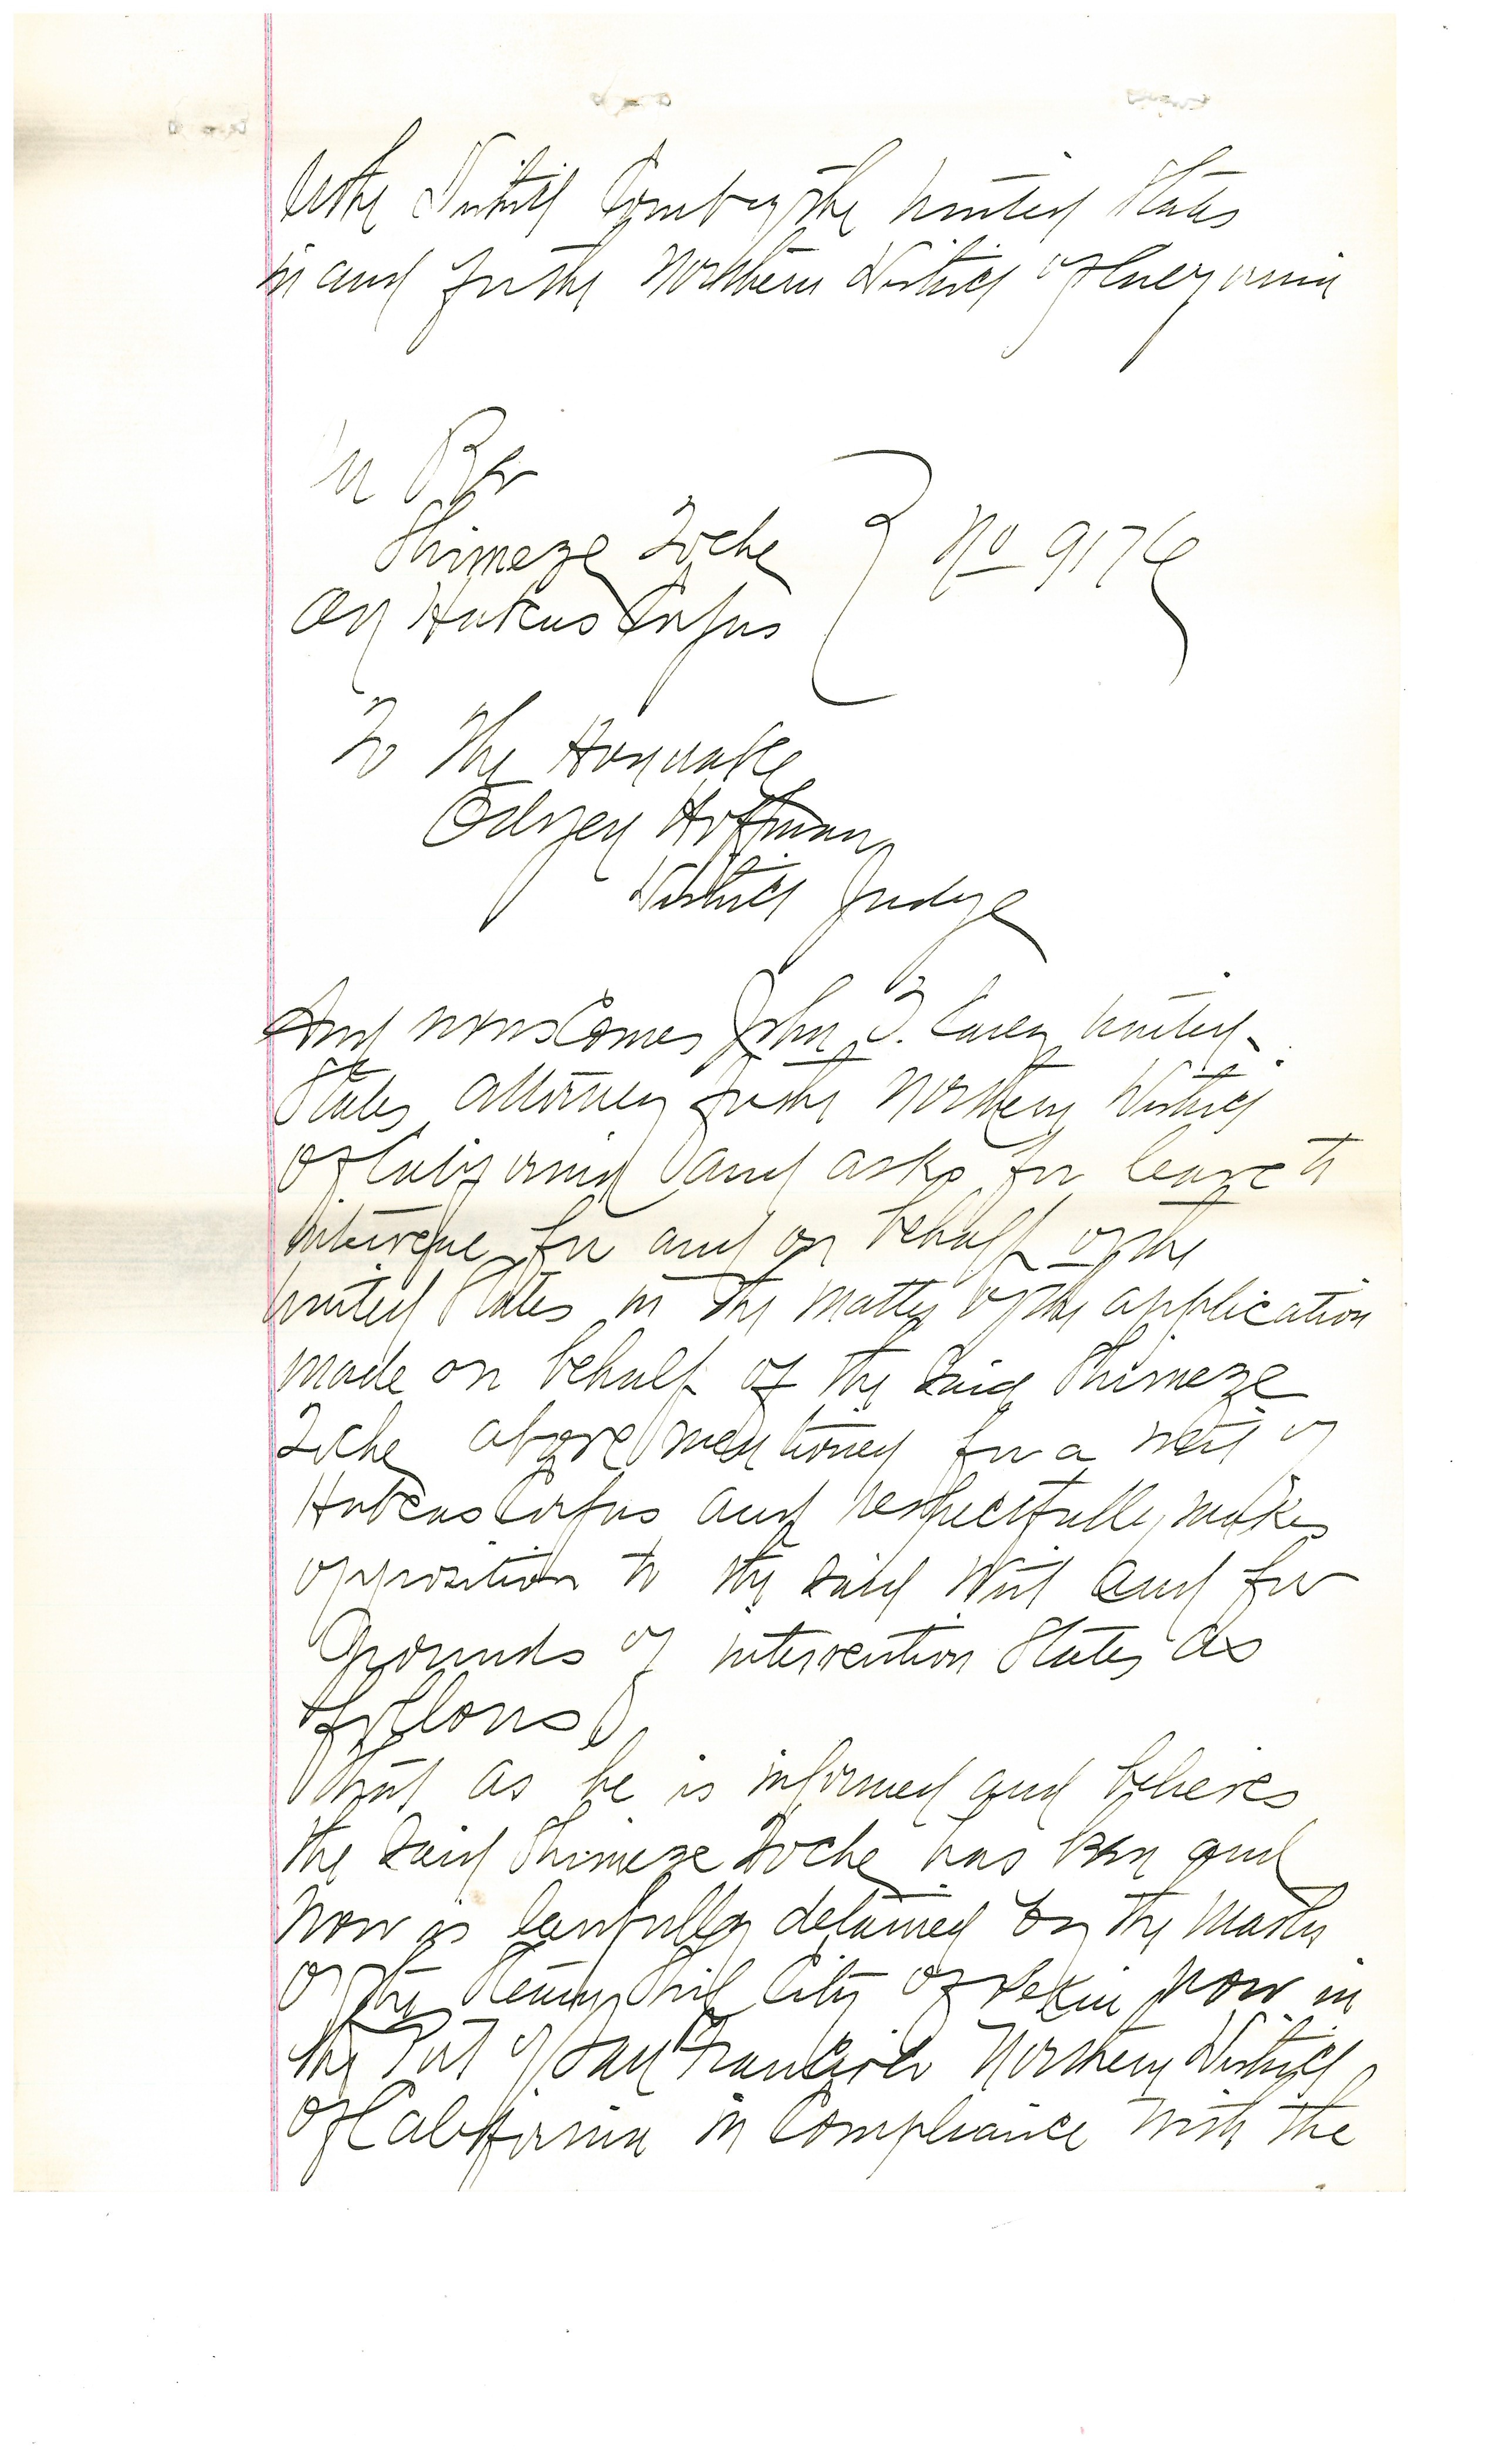 In the District Court of the United States
in and for the Northern District of California
In Re
Shimeze Toche
On Habeas Corpus
No 9176
To The Honorable
Ogden Hoffman
District Judge
And now comes John T. Carey United
States attorney for the Northern District
of California and asks for leave to
intervene for and on behalf of the
United States in the matter of the application
made on behalf of the said Shimeze
Toche above mentioned for a writ of
Habeas Corpus and respectfully makes
opposition to the said Writ and for
Grounds of intervention States as
follows
That as he is informed and believes
the said Shimeze Toche has been and
now is lawfully detained by the Master
of the Steam Ship City of Pekin now in
the Port of San Francisco Northern District
of California in Compliance with the